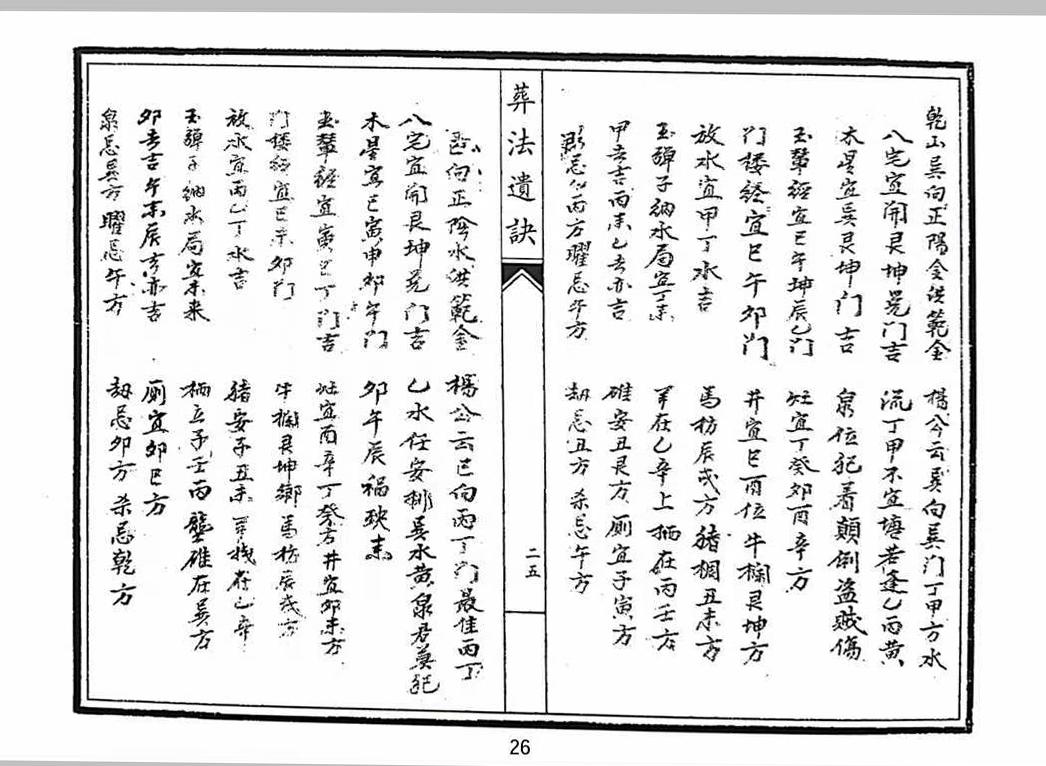 乾山巽向正陽金洪範金
楊公云巽向巽门丁甲方水
八宅宜開艮坤兌门吉
流丁甲不宜塘若逢乙丙黄
木星宜巽艮坤门吉
泉位犯着顛倒盗贼傷
玉輦經宜巳午坤辰乙门
灶宜丁癸卯酉辛方
门楼經宜巳午卯门
井宜巳酉位牛欄艮坤方
放水宜甲丁水吉
馬枋辰戌方猪椆丑未方
玉髀子納水局宜丁未
羊在乙辛上栖在丙壬方
甲亥吉丙未乙亥亦吉
碓安丑艮方厕宜子寅方
忌乙丙方曜忌午方
劫忌丑方杀忌午方
葬法遺訣
二五
向正陰水洪範金
楊公云巳向丙丁门最佳丙丁
八宅宜開艮坤兌门吉
乙水任安排巽水黄泉君莫犯
木星宜巳寅申卯午门
卯午辰禍殃未
玉輦經宜寅巳丁门吉
灶宜酉辛丁癸方井宜卯未方
门楼經宜巳未卯门
牛欄艮坤鄉馬枋辰戌方
放水宜丙乙丁水吉
猪安子丑未羊栈在乙辛
玉髀子納水局宜未来
栖立子壬丙壟碓在巽方
卯亥吉午未辰亥亦吉
厕宜卯巳方
泉忌巽方曜忌午方
劫忌卯方杀忌乾方
26